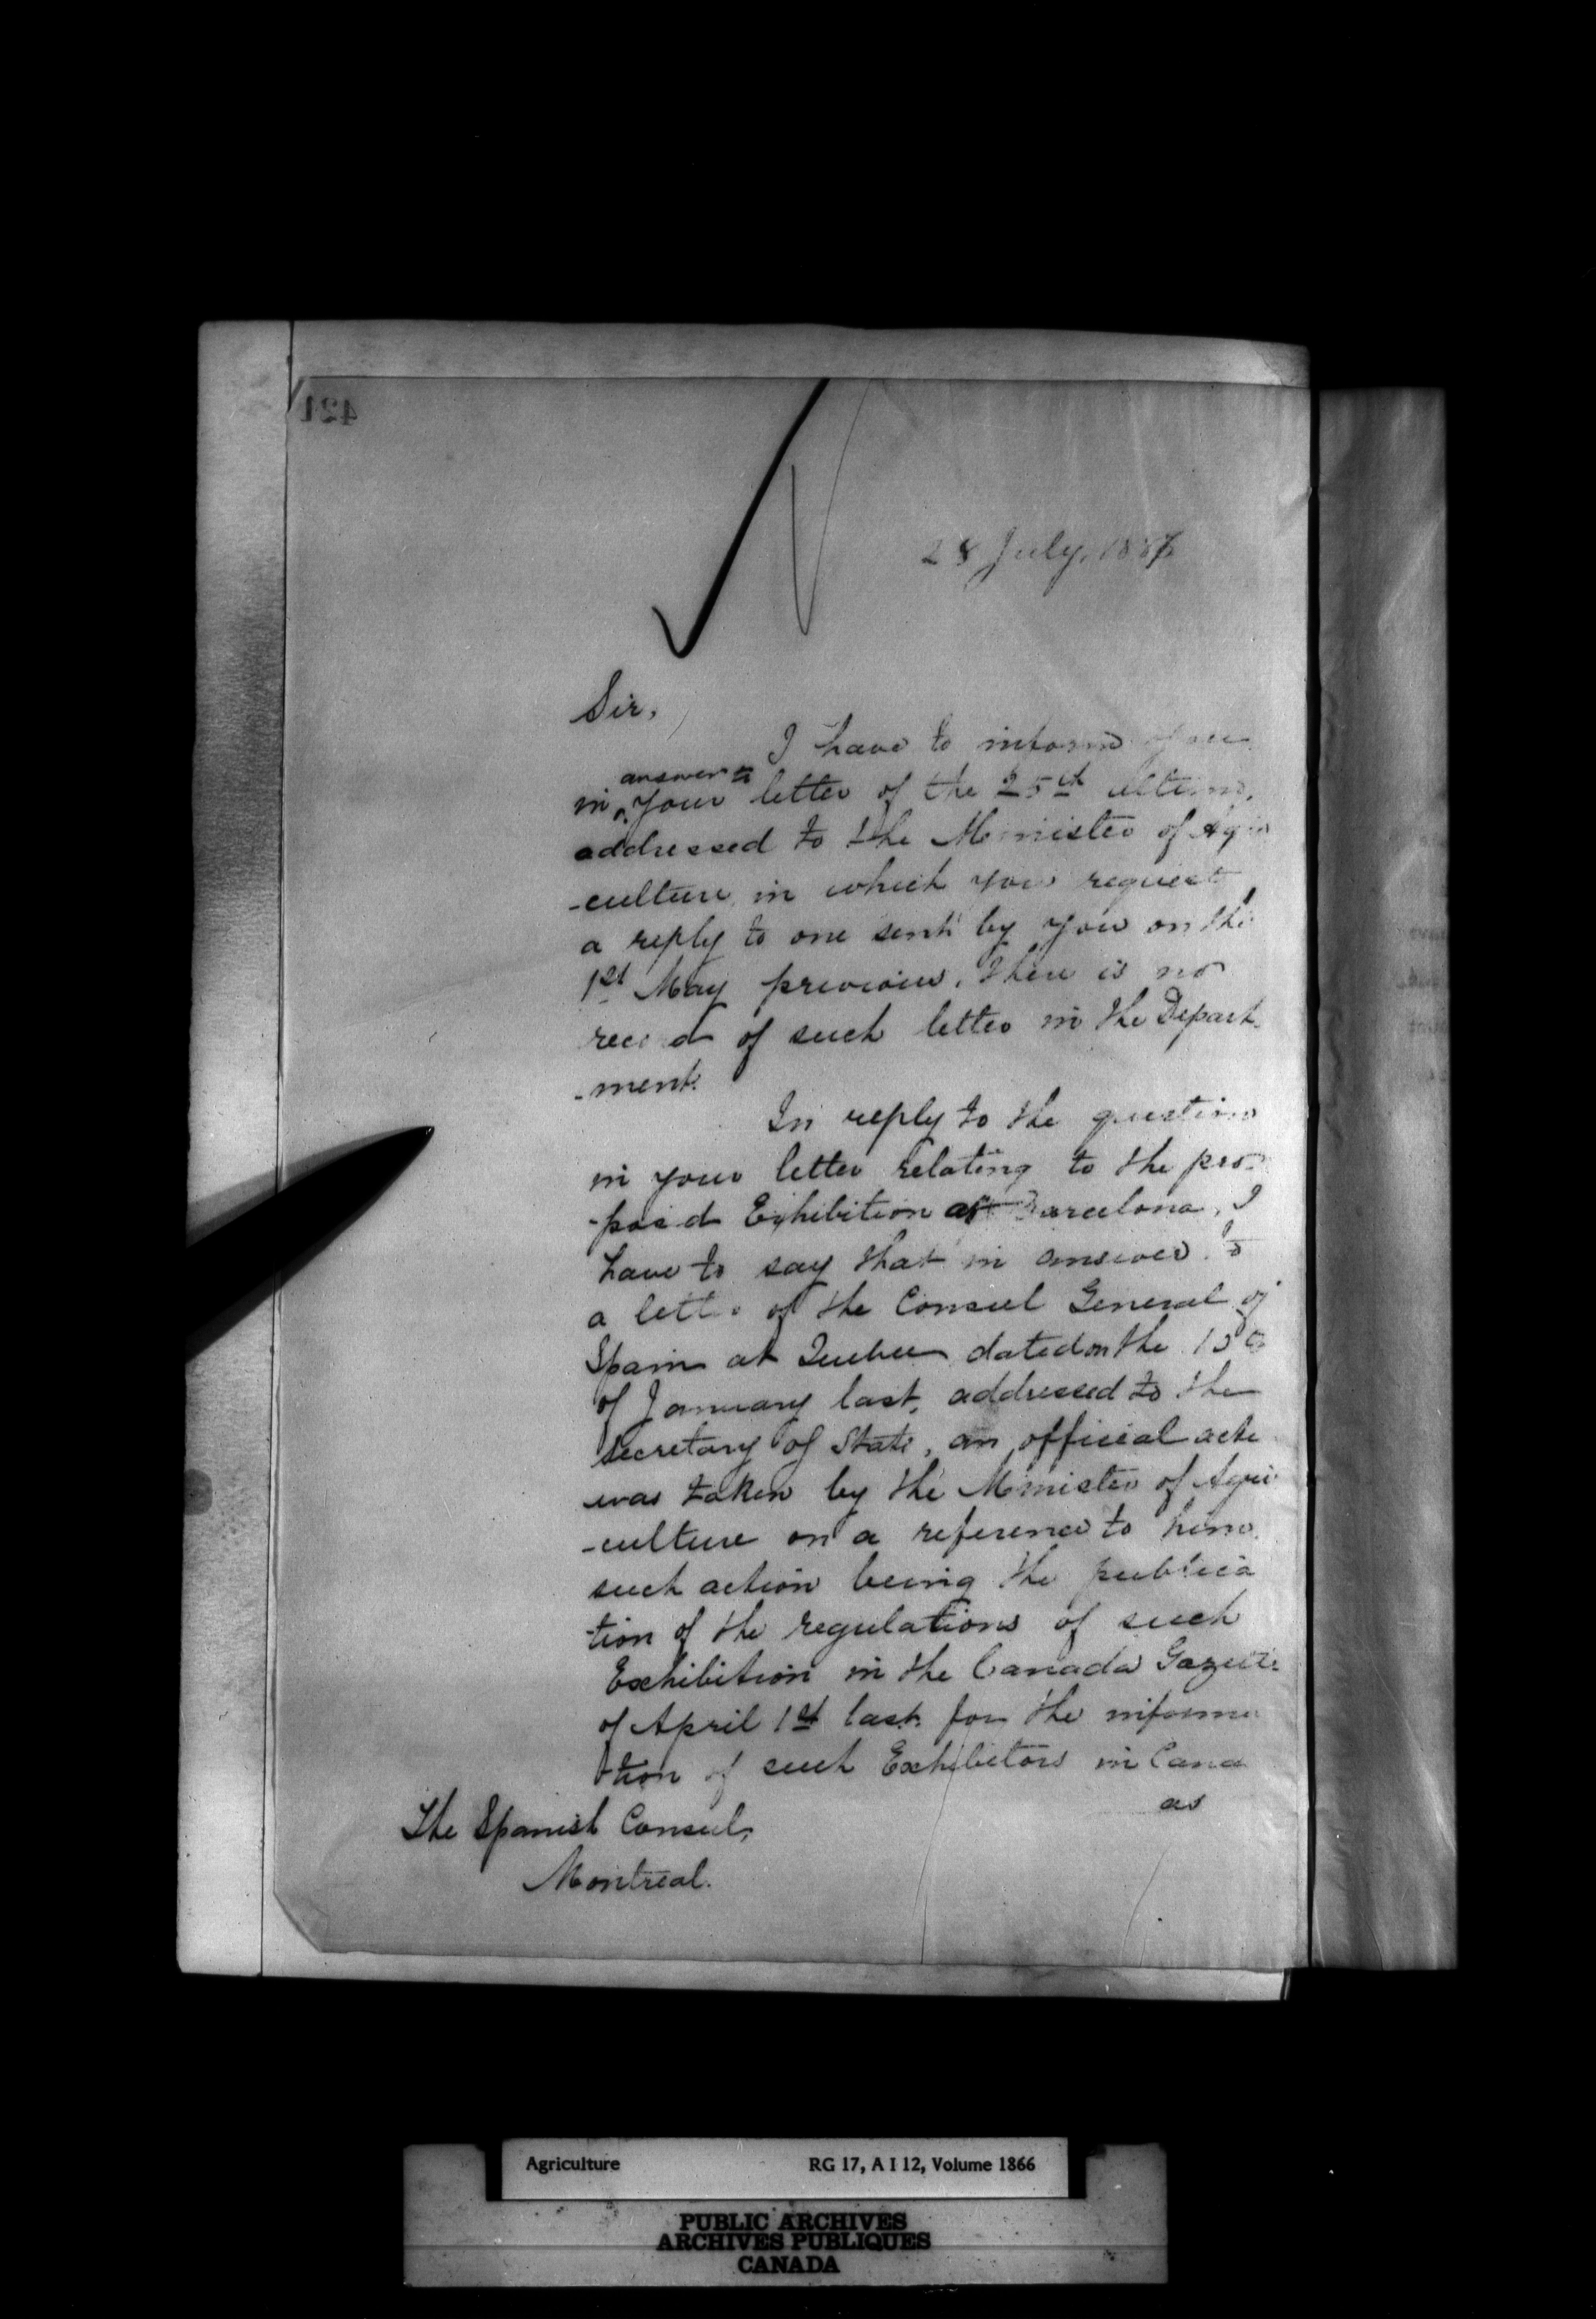 421
28 July, 188
Sir,
I have to inform you
answer to
in your letter of the 25th ultimo,
addressed to the Minister of Agri
-culture, in which you request
a reply to one sent by you on the
1st May previous. There is no
record of such letter in the Depart-
-ment.
In reply to the question
in your letter relating to the pro-
-posed Exhibition at Barcelona, I
have to say that in answer to
a letter of the Consul General of
Spain at Quebec dated on the
of January last, addressed to the
Secretary of State, an official acte
was taken by the Minister of Agri
-culture on a reference to him
such action being the publica
-tion of the regulations of such
Exhibition in the Canada Gazette
of April 1st last for the informa
-tion of such Exhibitors in Cana
as
The Spanish Consul,
Montreal.
Agriculture RG 17, A I 12, Volume 1866
PUBLIC ARCHIVES
ARCHIVES PUBLIQUES
CANADA